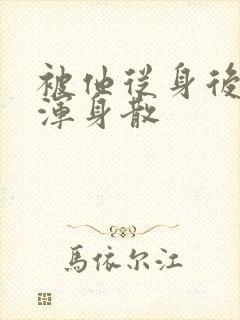 被他从身後
渾身散
馬依尔江